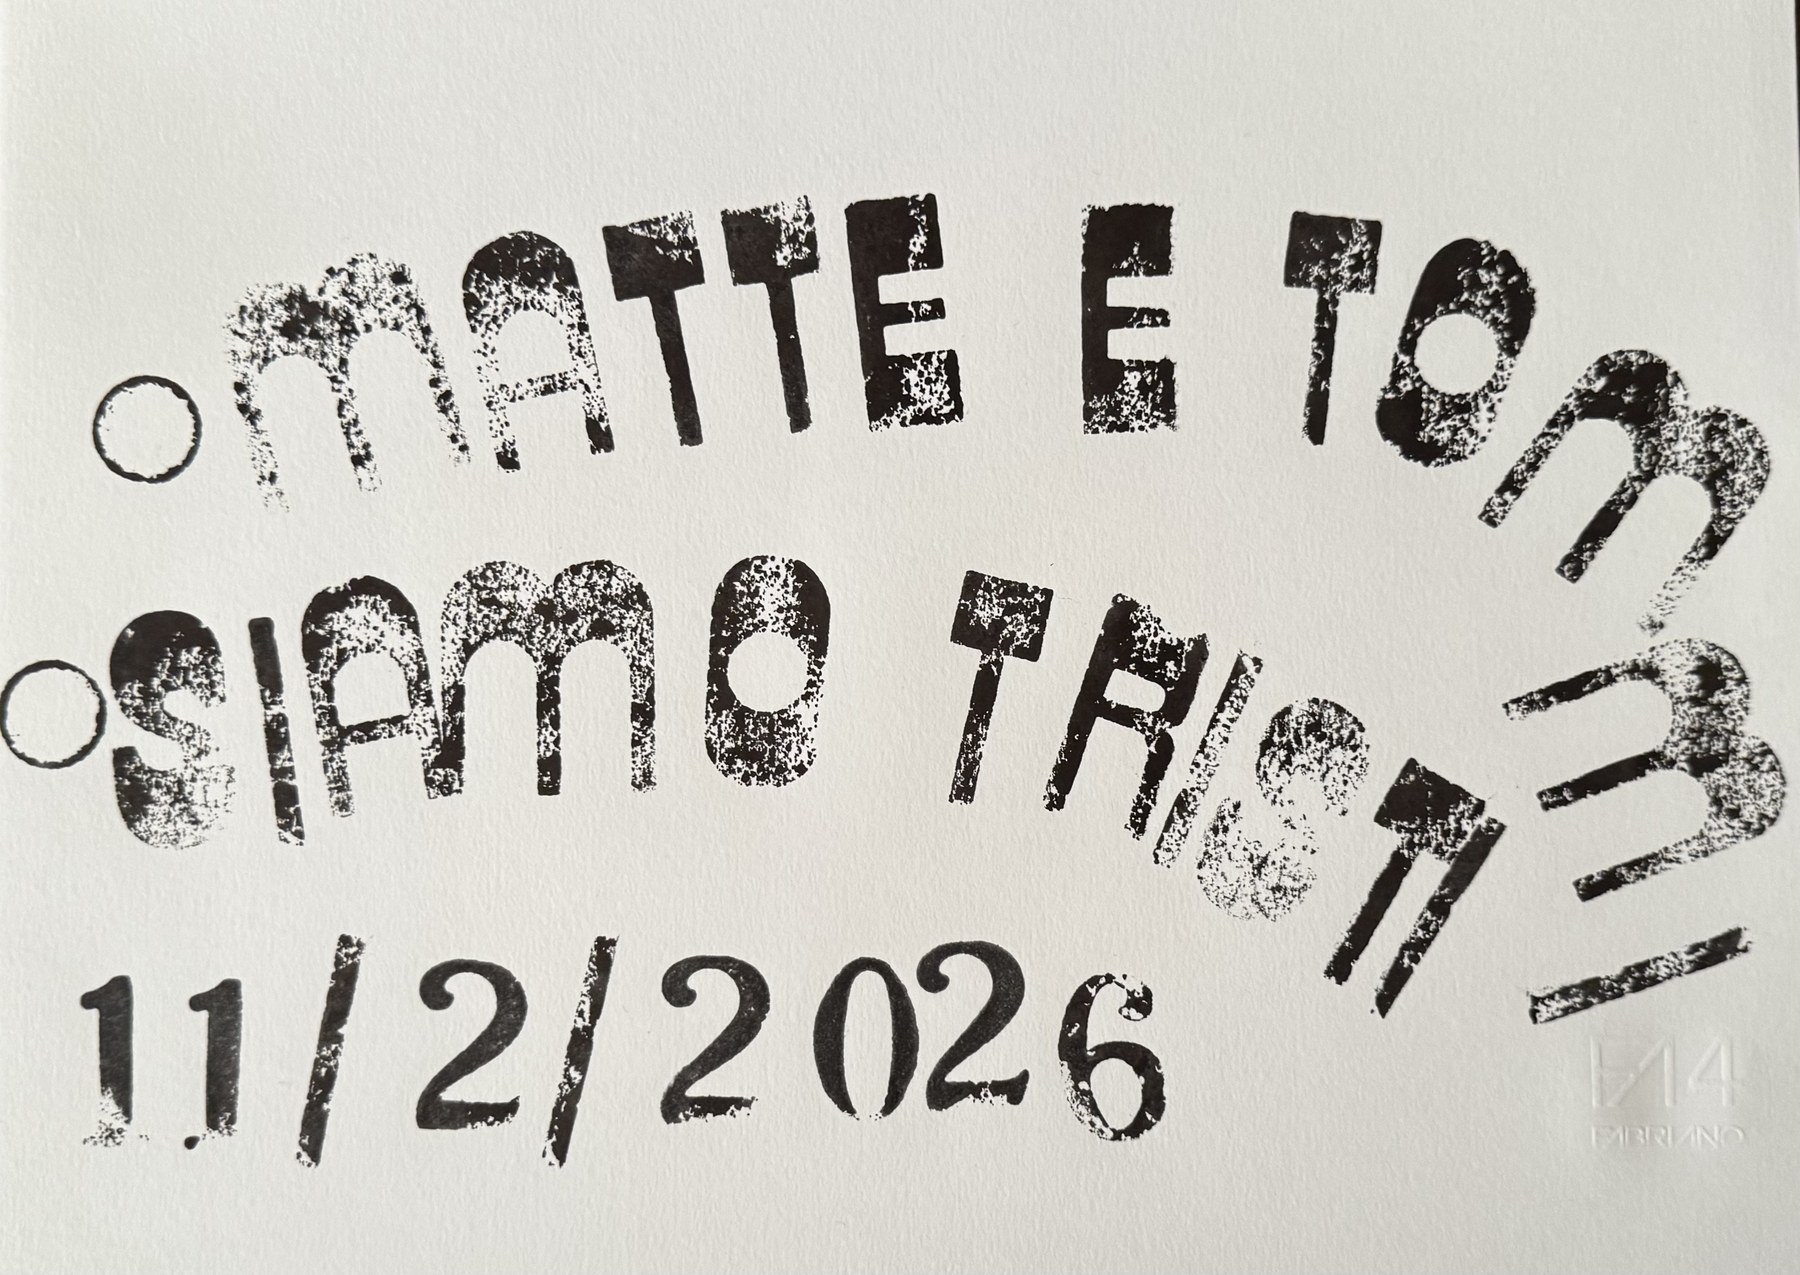 MATTE E TOMMI
SIAMO TRISTI
11/2/2026
FA4
FABRIANO